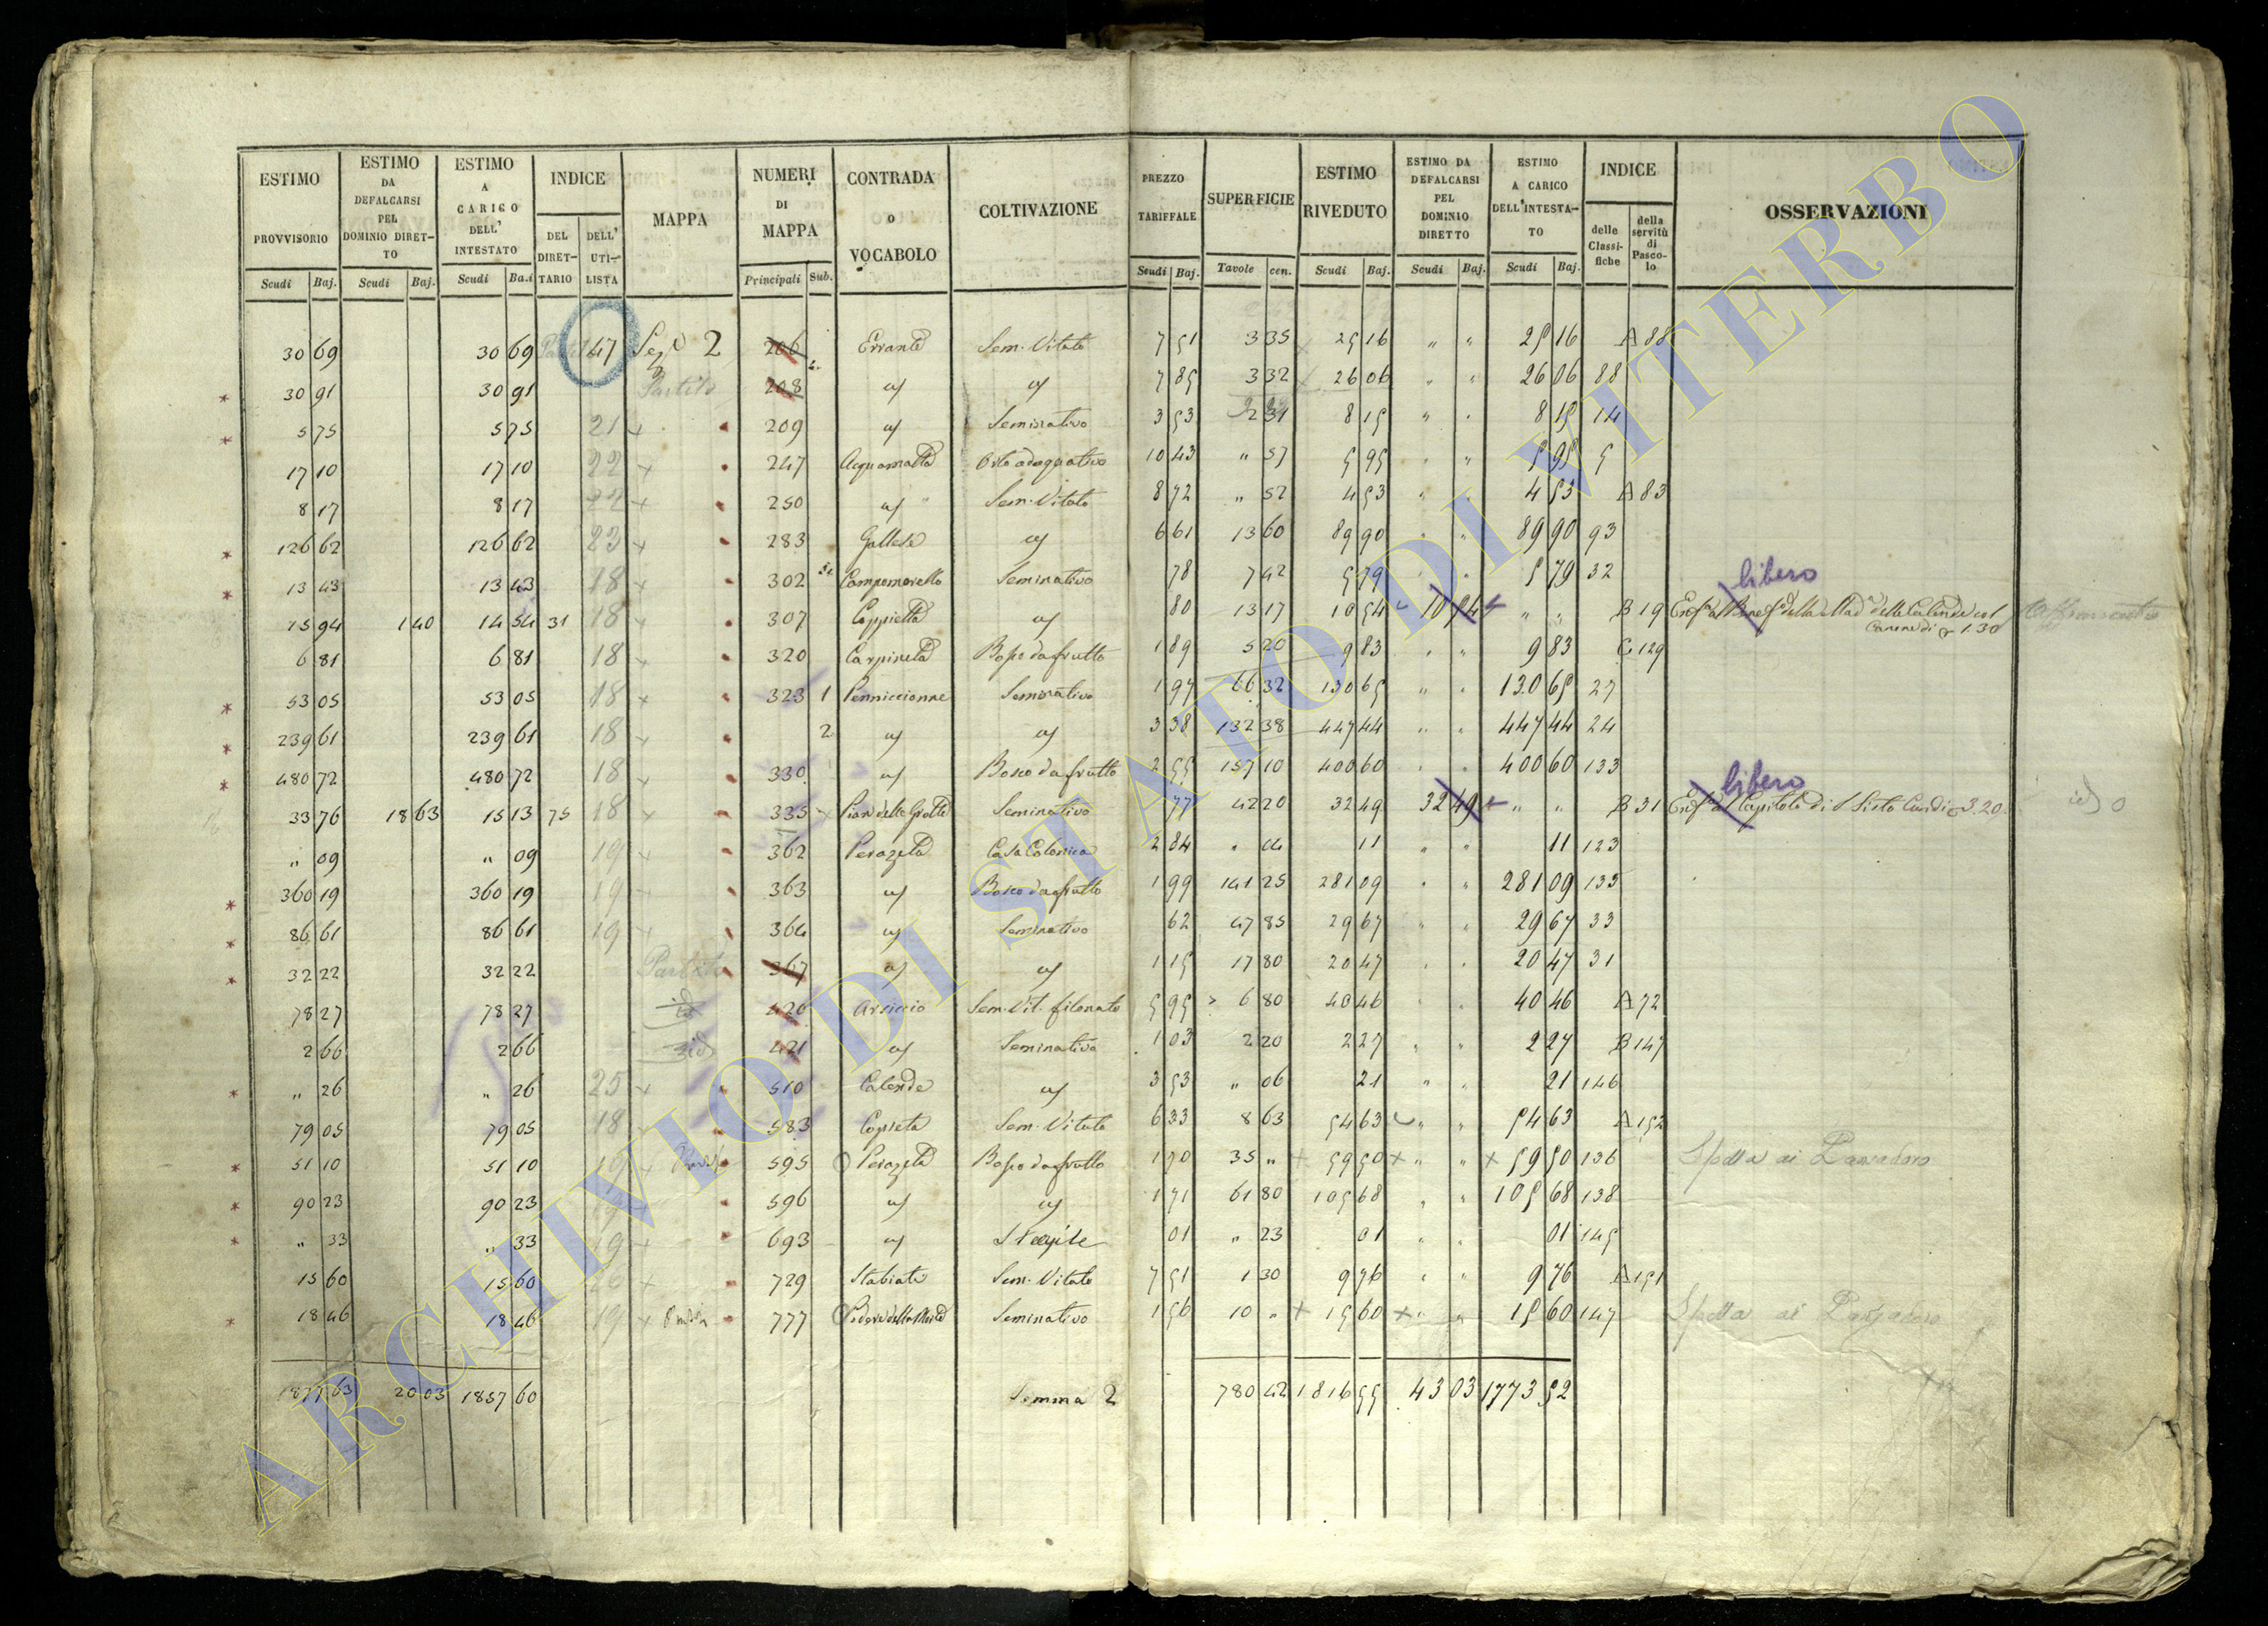 ESTIMO PROVVISORIO Scudi Baj. | ESTIMO DA DEFALCARSI PEL DOMINIO DIRETTO Scudi Baj. | ESTIMO A CARICO DELL' INTESTATO Scudi Ba.i | INDICE DEL DIRETTARIO DELL' UTILISTA | MAPPA | NUMERI DI MAPPA Principali Sub. | CONTRADA O VOCABOLO | COLTIVAZIONE | PREZZO TARIFFALE Scudi Baj. | SUPERFICIE Tavole cen. | ESTIMO RIVEDUTO Scudi Baj. | ESTIMO DA DEFALCARSI PEL DOMINIO DIRETTO Scudi Baj. | ESTIMO A CARICO DELL'INTESTATO Scudi Baj. | INDICE delle Classifiche della servitù di Pascolo | OSSERVAZIONI
30 69 30 69 147 2 206 Errante Sem. Vitato 7 51 3 35 25 16 " " 25 16 A 88
* 30 91 30 91 Partito 208 7 85 3 32 26 06 " " 26 06 88
* 5 75 5 75 21 209 Seminativo 3 53 2 31 8 15 " " 8 15 14
17 10 17 10 22 247 Acquamatta Orto adaquativo 10 43 " 57 5 95 " " 5 95 5
8 17 8 17 22 250 Sem. Vitato 8 72 " 52 4 53 " " 4 53 A 83
* 126 62 126 62 23 283 Gallese 6 61 13 60 89 90 " " 89 90 93
* 13 43 13 43 18 302 Campomorello Seminativo 78 7 42 5 79 " " 5 79 32
libero
15 94 1 40 14 54 31 18 307 Coppietta 80 13 17 10 54 10 54 " " B 19
6 81 6 81 18 320 Carpineta Bosco da frutto 1 89 5 20 9 83 " " 9 83 C 129
* 53 05 53 05 18 323 1 Penniccionne Seminativo 1 97 66 32 130 65 " " 130 65 27
* 239 61 239 61 18 2 3 38 132 38 447 44 " " 447 44 24
* 480 72 480 72 18 330 Bosco da frutto 2 55 157 10 400 60 " " 400 60 133
libero
33 76 18 63 15 13 75 18 335 Pian delle Grotte Seminativo 77 42 20 32 49 32 49 " " B 31 al Capitolo di S Sisto 3.20
" 09 " 09 19 362 Perazeta Casa Colonica 2 84 " 04 11 " " 11 123
* 360 19 360 19 19 363 Bosco da frutto 1 99 141 25 281 09 " " 281 09 135
* 86 61 86 61 19 364 Seminativo 62 47 85 29 67 " " 29 67 33
* 32 22 32 22 Partito 367 1 15 17 80 20 47 " " 20 47 31
78 27 78 27 420 Arciccio Sem. Vit. filonato 5 95 6 80 40 46 " " 40 46 A 72
2 66 2 66 421 Seminativo 1 03 2 20 2 27 " " 2 27 B 147
* " 26 " 26 25 510 Calende 3 53 " 06 21 " " 21 146
79 05 79 05 18 583 Copieta Sem. Vitato 6 33 8 63 54 63 " " 54 63 A 152
* 51 10 51 10 19 595 Perazeta Bosco da frutto 1 70 35 " 59 50 " " 59 50 136 Spetta ai
* 90 23 90 23 596 1 71 61 80 105 68 " " 105 68 138
* " 33 " 33 19 693 01 " 23 01 " " 01 145
15 60 15 60 729 Stabiate Sem. Vitato 7 51 1 30 9 76 " " 9 76 A 151
* 18 46 18 46 19 777 Seminativo 1 56 10 " 15 60 " " 15 60 147 Spetta ai
1877 63 20 03 1857 60 Somma 2 780 42 1816 55 43 03 1773 52
ARCHIVIO DI STATO DI VITERBO